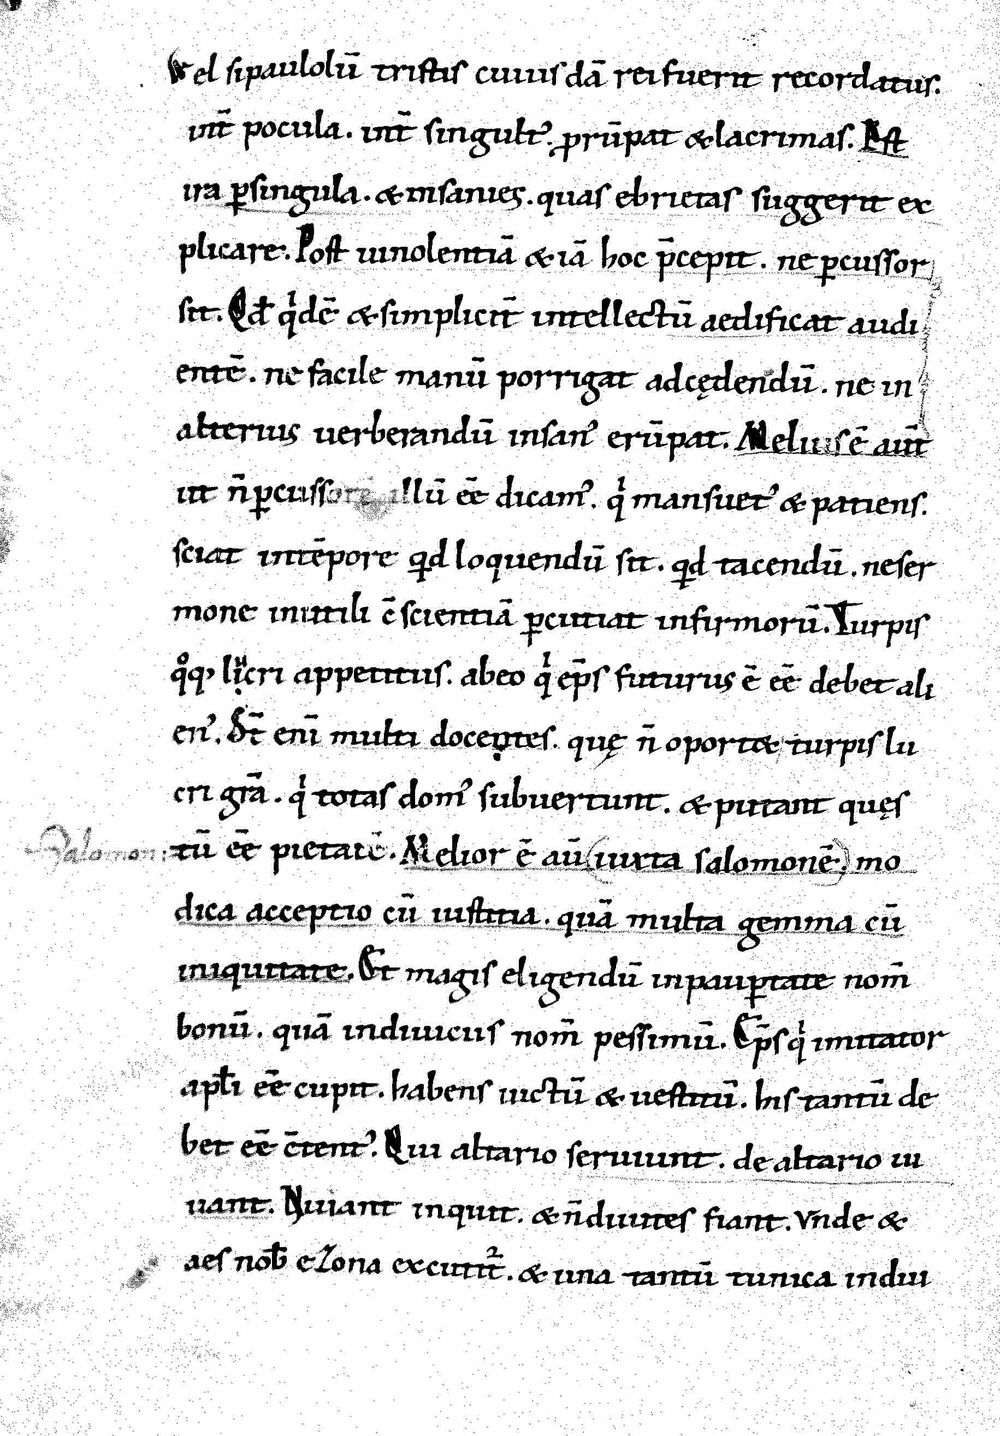 Vel si paulolū tristis cuiusdā rei fuerit recordatus.
int̄ pocula. int̄ singult᾽. prūpat & lacrimas. Est
ira ꝑsingula. & insanies. quas ebrietas suggerit ex
plicare. Post uinolentiā & iā hoc p̄cepit. ne ꝑcussor
sit. Qđ qͥdē & simplicit̄ intellectū aedificat audi
entē. ne facile manū porrigat adcędendū. ne in
alterius uerberandū insan᾽ erūpat. Melius ē aut̄
ut n̄ ꝑcussorē illū eē dicam᾽. qͥ mansuet᾽ & patiens.
sciat intēpore qͥd loquendū sit. qͥd tacendū. ne ser
mone inutili c̄scientiā ꝑcutiat infirmorū. Turpis
qͦq; lucri appetitus. abeo qͥ ep̄s futurus ē eē debet ali
en᾽. St̄ enī multi docentes. quę n̄ oportet turpis lu
cri grā. qͥ totas dom᾽ subuertunt. & putant quęs
Salomon: tū eē pietatē. Melior ē aū (iuxta salomonē) mo
dica acceptio cū iustitia. quā multa gemma cū
iniquitate. Et magis eligendū inpauꝑtate nom̄
bonū. quā indiuiciis nom̄ pessimū. Ep̄s qͥ imitator
apl̄i eē cupit. habens uictū & uestitū. his tantū de
bet eē c̄tent᾽. Qui altario seruiunt. de altario ui
uant. Viuiant inquit. & n̄ diuites fiant. Vnde &
aes nob̄ eZona excutit᷑. & una tantū tunica indui